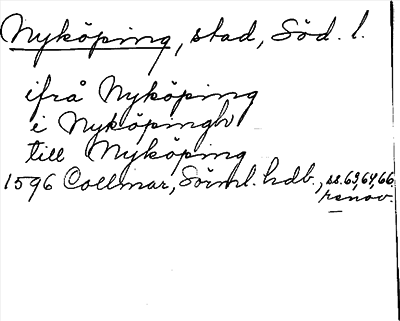 Nyköping, stad, Söd. l.
ifrå Nyköping
i Nyköpingh
till Nyköping
1596 Collmar, Sörml. hdb., ss. 63, 64, 66
renov.